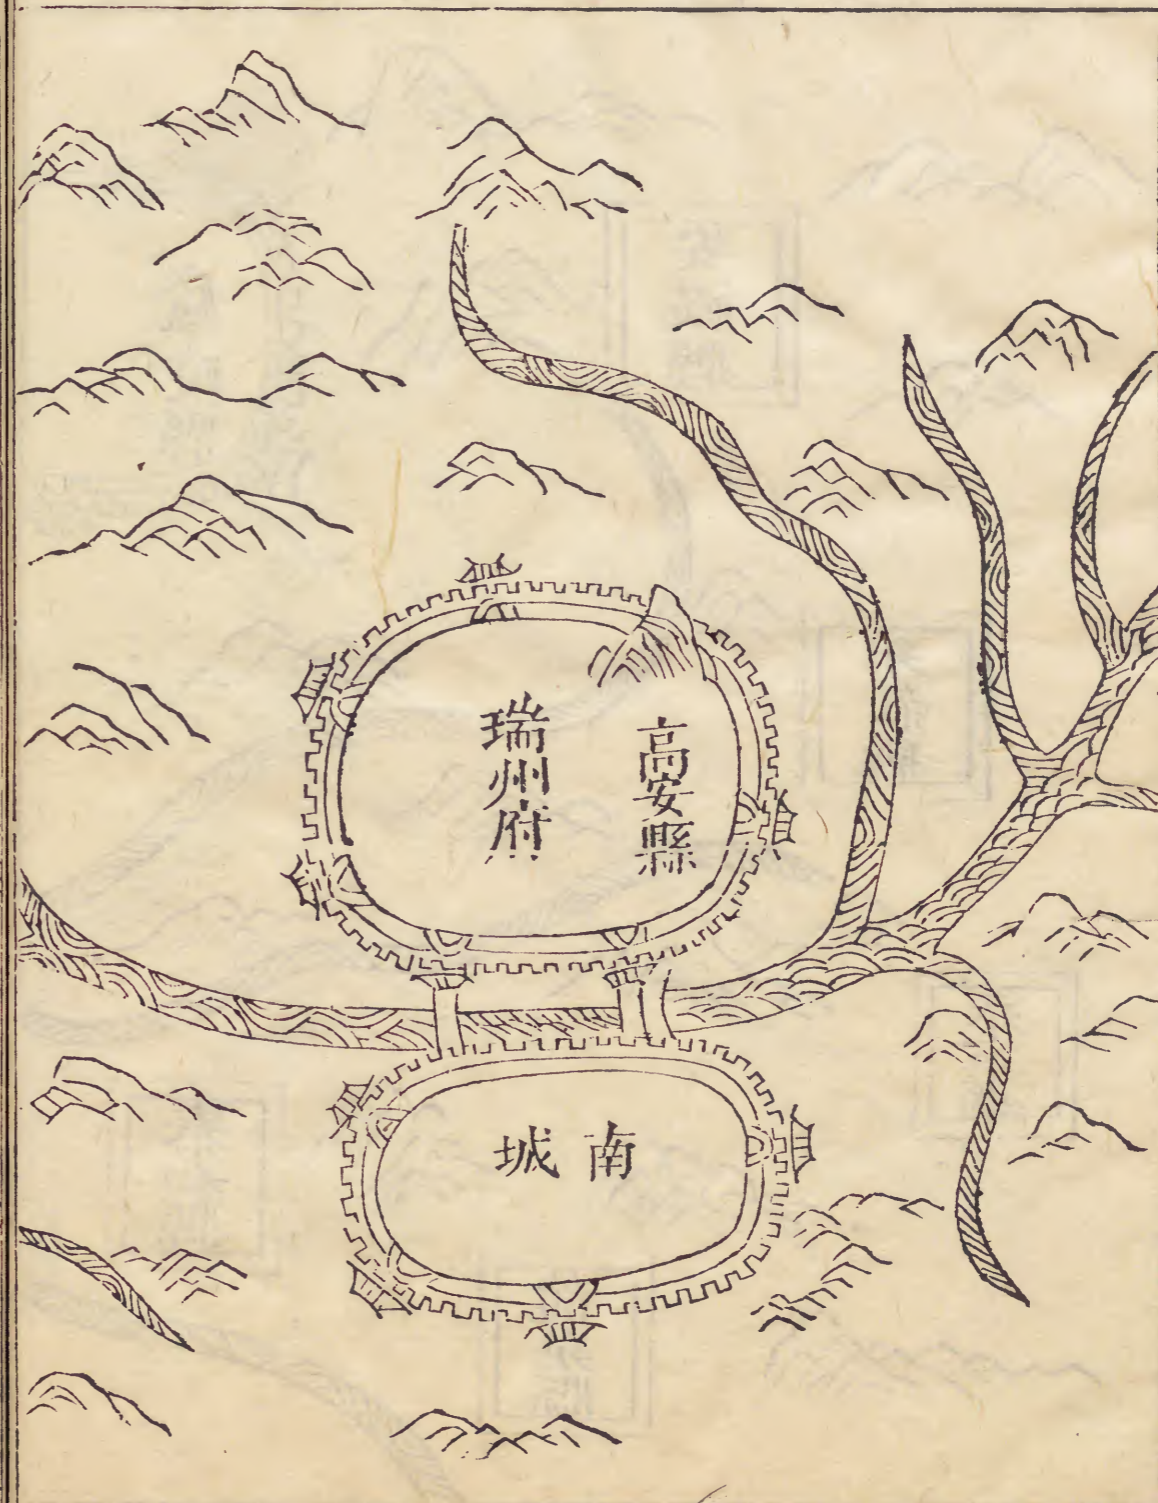 高安縣
瑞州府
南城